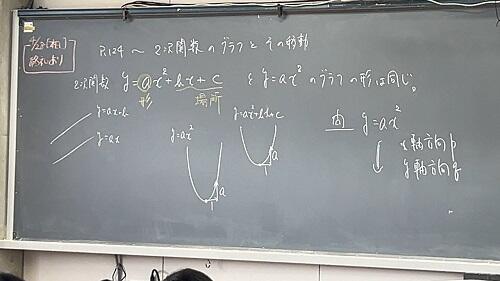 P.124 ～ 2次関数のグラフとその移動
2次関数 y=ax²+bx+c と y=ax² のグラフの形は同じ。
形 場所
y=ax+b
y=ax
y=ax²
a
1
y=ax²+bx+c
a
1
y=ax²
x軸方向 p
y軸方向 q